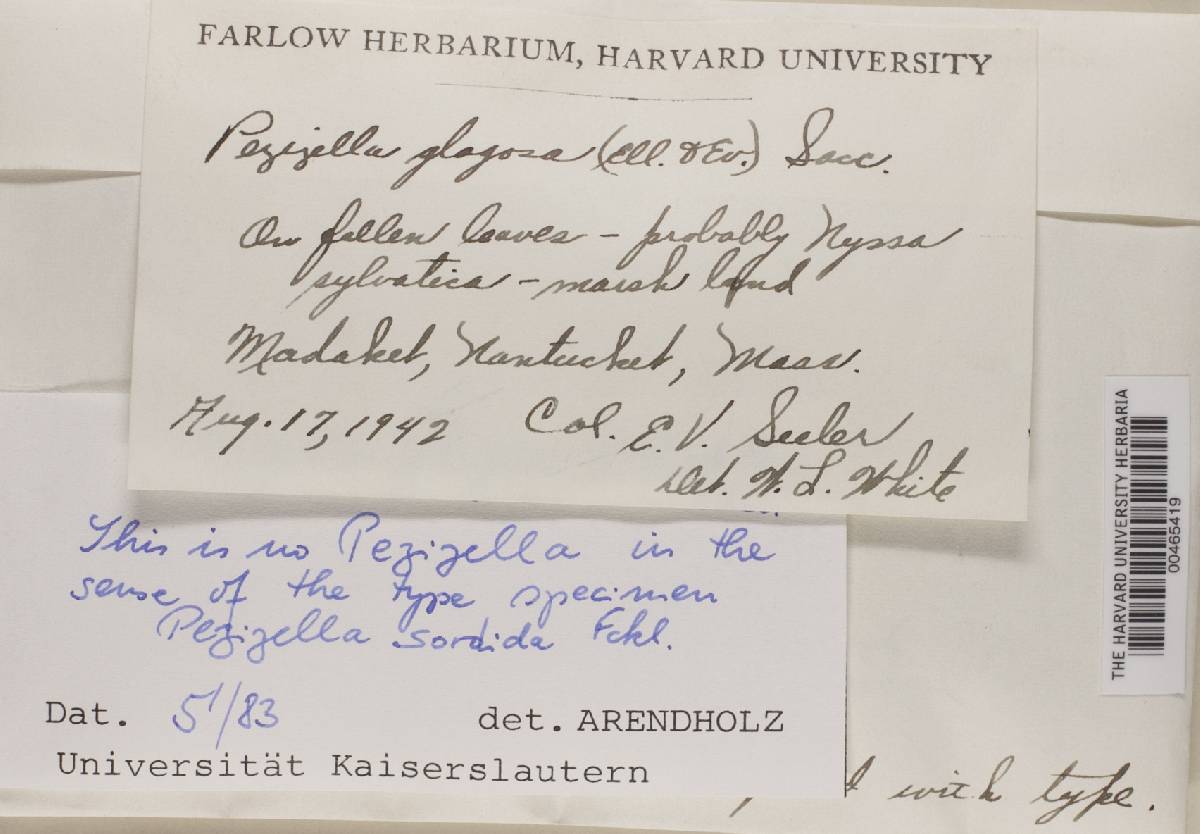 FARLOW HERBARIUM, HARVARD UNIVERSITY
Pezizella glagosa (Ell. & Ev.) Sacc.
On fallen leaves – probably Nyssa
sylvatica – marsh land
Madaket, Nantucket, Mass.
Aug. 17, 1942 Col. E. V. Seeler
Det. W. L. White
This is no Pezizella in the
sense of the type specimen
Pezizella sordida Fckl.
Dat. 5/83 det. ARENDHOLZ
Universität Kaiserslautern
with type.
THE HARVARD UNIVERSITY HERBARIA
00465419